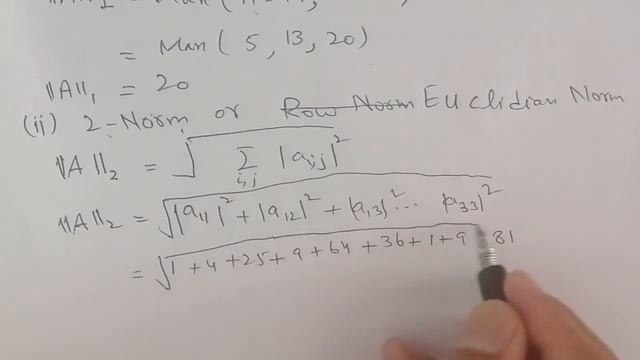 = Man ( 5 , 13 , 20 )
||A||₁ = 20
(ii) 2-Norm or Row Norm Euclidian Norm
||A||₂ = √ Σ i,j |aij|²
||A||₂ = √ |a11|² + |a12|² + |a13|² ... |a33|²
= √ 1 + 4 + 25 + 9 + 64 + 36 + 1 + 9 81